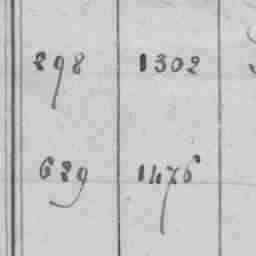 298 1302
629 1476